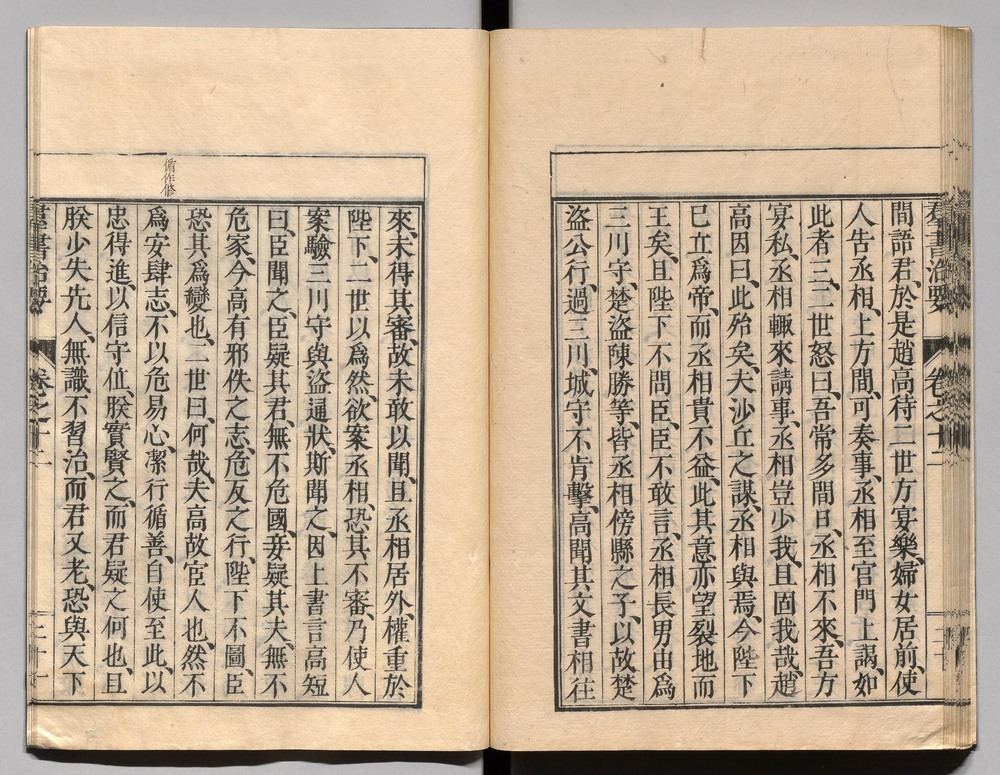 群書治要 卷之十一 三十
間語君、於是趙高待二世方宴樂、婦女居前、使
人告丞相、上方間、可奏事、丞相至官門上謁、如
此者三、二世怒曰、吾常多間日、丞相不來、吾方
宴私、丞相輙來請事、丞相豈少我、且固我哉、趙
高因曰、此殆矣、夫沙丘之謀、丞相與焉、今陛下
已立爲帝、而丞相貴不益、此其意亦望裂地而
王矣、且陛下不問臣、臣不敢言、丞相長男由爲
三川守、楚盜陳勝等、皆丞相傍縣之子、以故楚
盜公行、過三川、城守不肯擊、高聞其文書相往
來、未得其審、故未敢以聞、且丞相居外、權重於
陛下、二世以爲然、欲案丞相、恐其不審、乃使人
案驗三川守與盜通狀、斯聞之、因上書言高短
曰、臣聞之、臣疑其君、無不危國、妾疑其夫、無不
危家、今高有邪佚之志、危反之行、陛下不圖、臣
恐其爲變也、二世曰、何哉、夫高故宦人也、然不
爲安肆志、不以危易心、潔行循善、自使至此、以
循作修
忠得進、以信守位、朕實賢之、而君疑之何也、且
朕少失先人、無識不習治、而君又老、恐與天下
群書治要 卷之十一 三十一